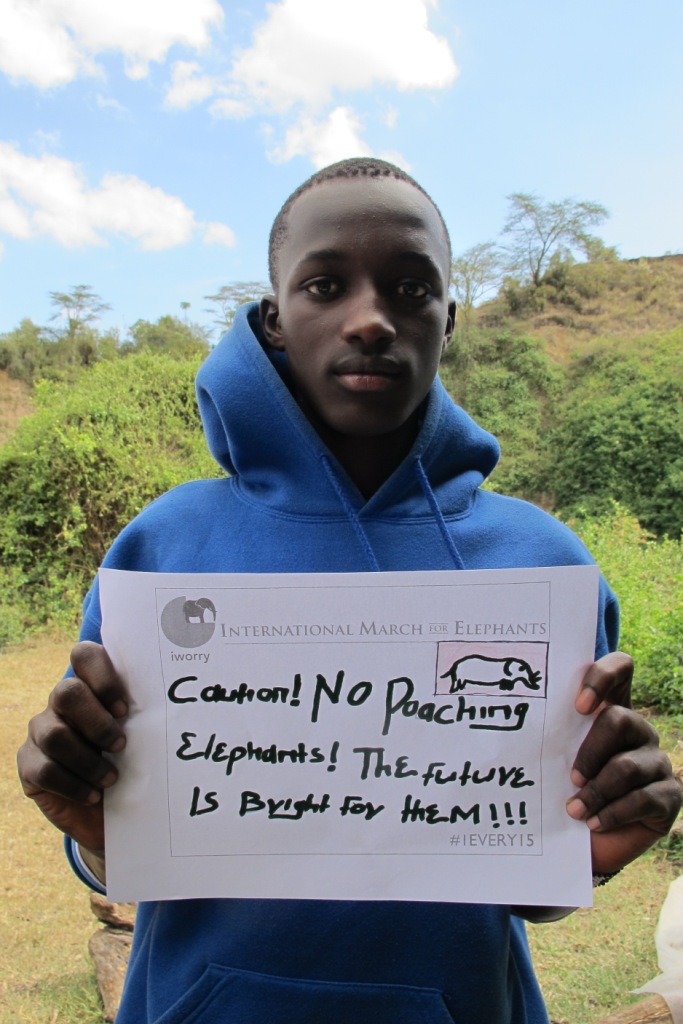 iworry
INTERNATIONAL MARCH FOR ELEPHANTS
Caution! No Poaching
Elephants! The future
Is Bright for theM!!!
#1EVERY15